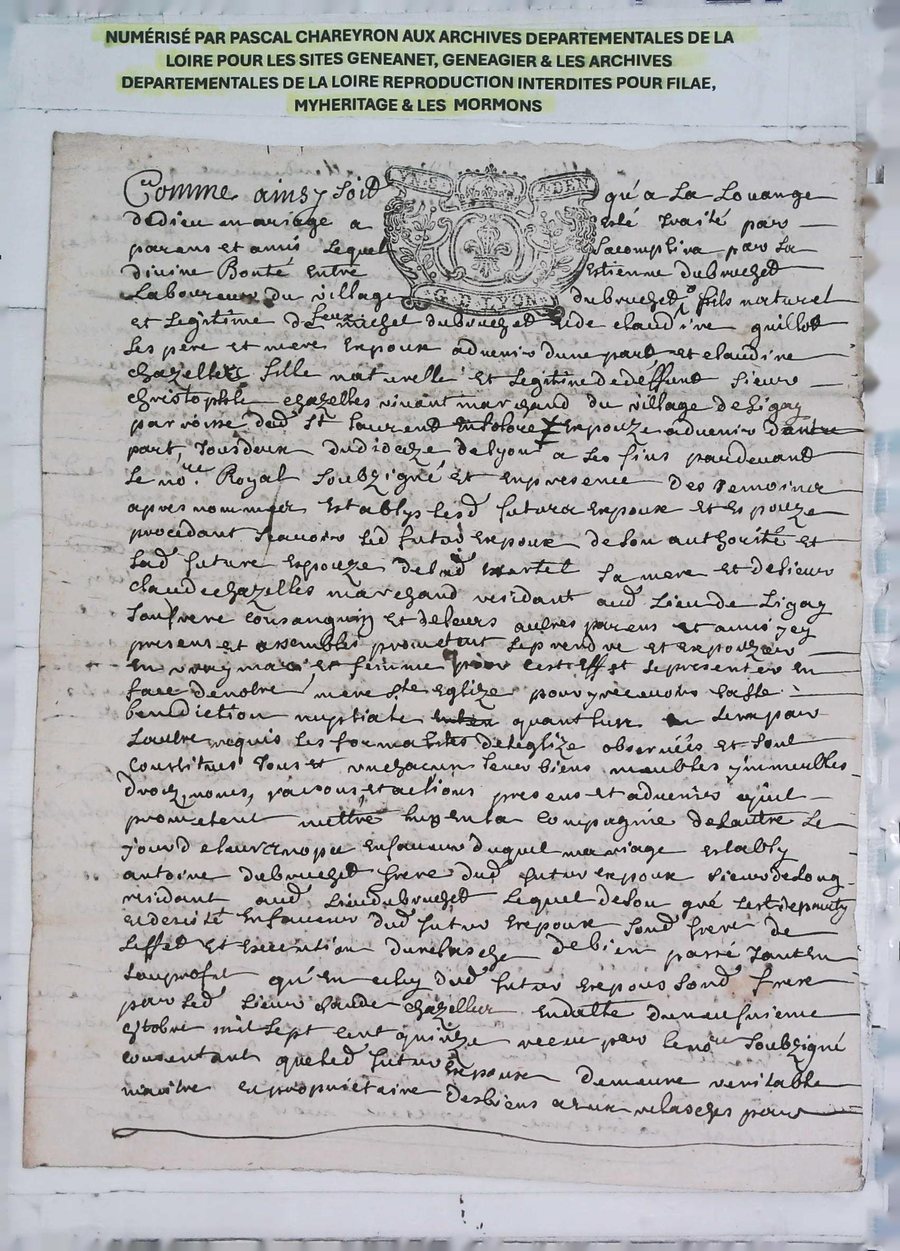 NUMÉRISÉ PAR PASCAL CHAREYRON AUX ARCHIVES DEPARTEMENTALES DE LA
LOIRE POUR LES SITES GENEANET, GENEAGIER & LES ARCHIVES
DEPARTEMENTALES DE LA LOIRE REPRODUCTION INTERDITES POUR FILAE,
MYHERITAGE & LES MORMONS
Comme ainsy soit qu'a La Louange
G. D. LYON
dedieu mariage a esté traité par
parens et amis Lequel sacomplira par sa
divine Bonté Entre Estienne dubruchet
Laboureur du village dubruchet fils naturel
et Legitime de feux michel dubruchet et de claudine guillot
ses père et mere Expoux advenir dune part et claudine
chazelles fille naturelle et Legitime dedeffunt sieur
christophle chazelles vivant marchand du village de Ligay
parroisse dud St Laurent Expouze advenir dautre
part, tous deux dudioceze de Lyon a ses fins pardevant
Le nore Royal soubzigné et en presence des temoins
apres nommés Establys lesd futurs Expoux et Espouze
procedant scavoir led futur Expoux de son authorité et
lad future Espouze de lad sa mere et de sieur
claude chazelles marchand residant aud Lieu de Ligay
son frere consanguin et de leurs autres parens et amis icy
presens et assemblés prometent se prendre et Expouzer
En vray mary et femme pour cest Effet se presenter En
face de notre mere Ste Eglize pour y recevoir
benediction nuptiale quant lun sera par
Lautre requis les formalités de leglize observées et sont
constitues tous et un chacun leurs biens meubles ymmeubles
droiz, noms, raisons, et actions presens et advenirs quil
prometent mettre En la compagnie de Lautre Le
jour de leurs nopces En faveur duquel mariage Estably
antoine dubruchet frere dud futur Expoux
residant aud Lieu dubruchet Lequel de son gré
En faveur dud futur Expoux sond frere de
Leffet et Execution du relasche de bien passé tant En
son profit qu'en celuy dud futur Expoux sond frere
par led sieur claude chazelles En datte du neufvieme
octobre mil sept cent quinze receu par le nore soubzigné
consentant que led futur Expoux demeure veritable
maitre Et proprietaire des biens a eux relaschés pour